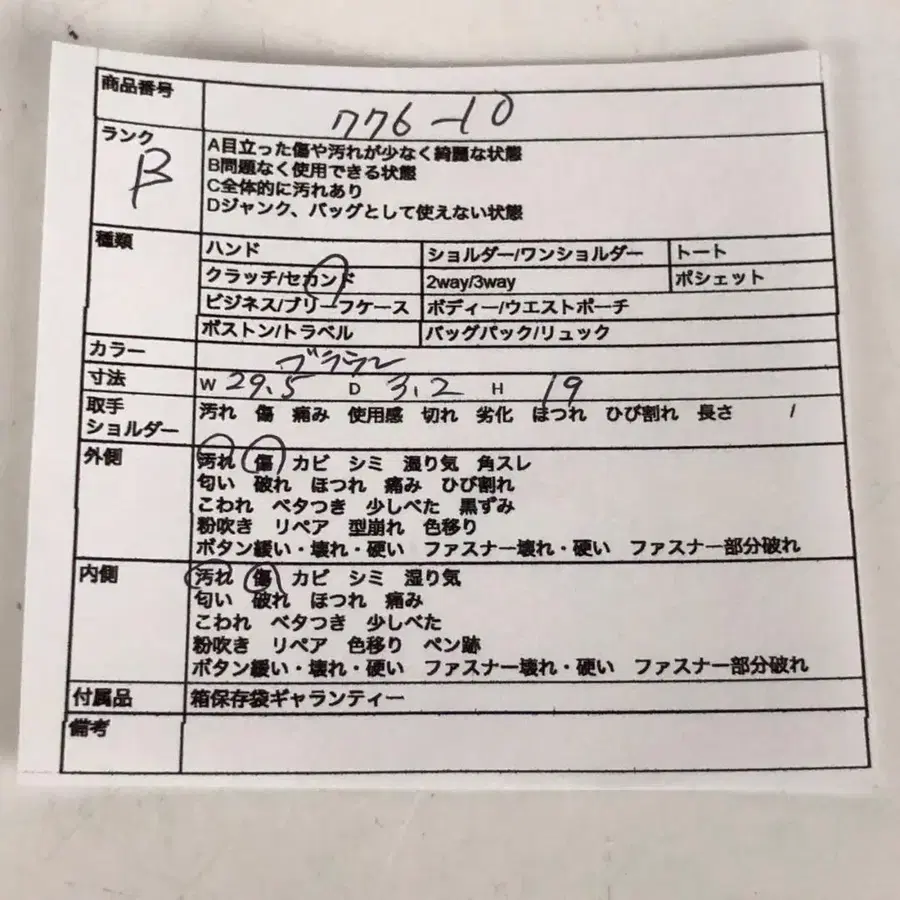 商品番号 776-10
ランク B
A目立った傷や汚れが少なく綺麗な状態
B問題なく使用できる状態
C全体的に汚れあり
Dジャンク、バッグとして使えない状態
種類 ハンド ショルダー/ワンショルダー トート
クラッチ/セカンド 2way/3way ポシェット
ビジネス/ブリーフケース ボディー/ウエストポーチ
ボストン/トラベル バッグパック/リュック
カラー ブラウン
寸法 W 29.5 D 3.2 H 19
取手 汚れ 傷 痛み 使用感 切れ 劣化 ほつれ ひび割れ 長さ /
ショルダー
外側 汚れ 傷 カビ シミ 湿り気 角スレ
匂い 破れ ほつれ 痛み ひび割れ
こわれ ベタつき 少しべた 黒ずみ
粉吹き リペア 型崩れ 色移り
ボタン緩い・壊れ・硬い ファスナー壊れ・硬い ファスナー部分破れ
内側 汚れ 傷 カビ シミ 湿り気
匂い 破れ ほつれ 痛み
こわれ ベタつき 少しべた
粉吹き リペア 色移り ペン跡
ボタン緩い・壊れ・硬い ファスナー壊れ・硬い ファスナー部分破れ
付属品 箱保存袋ギャランティー
備考